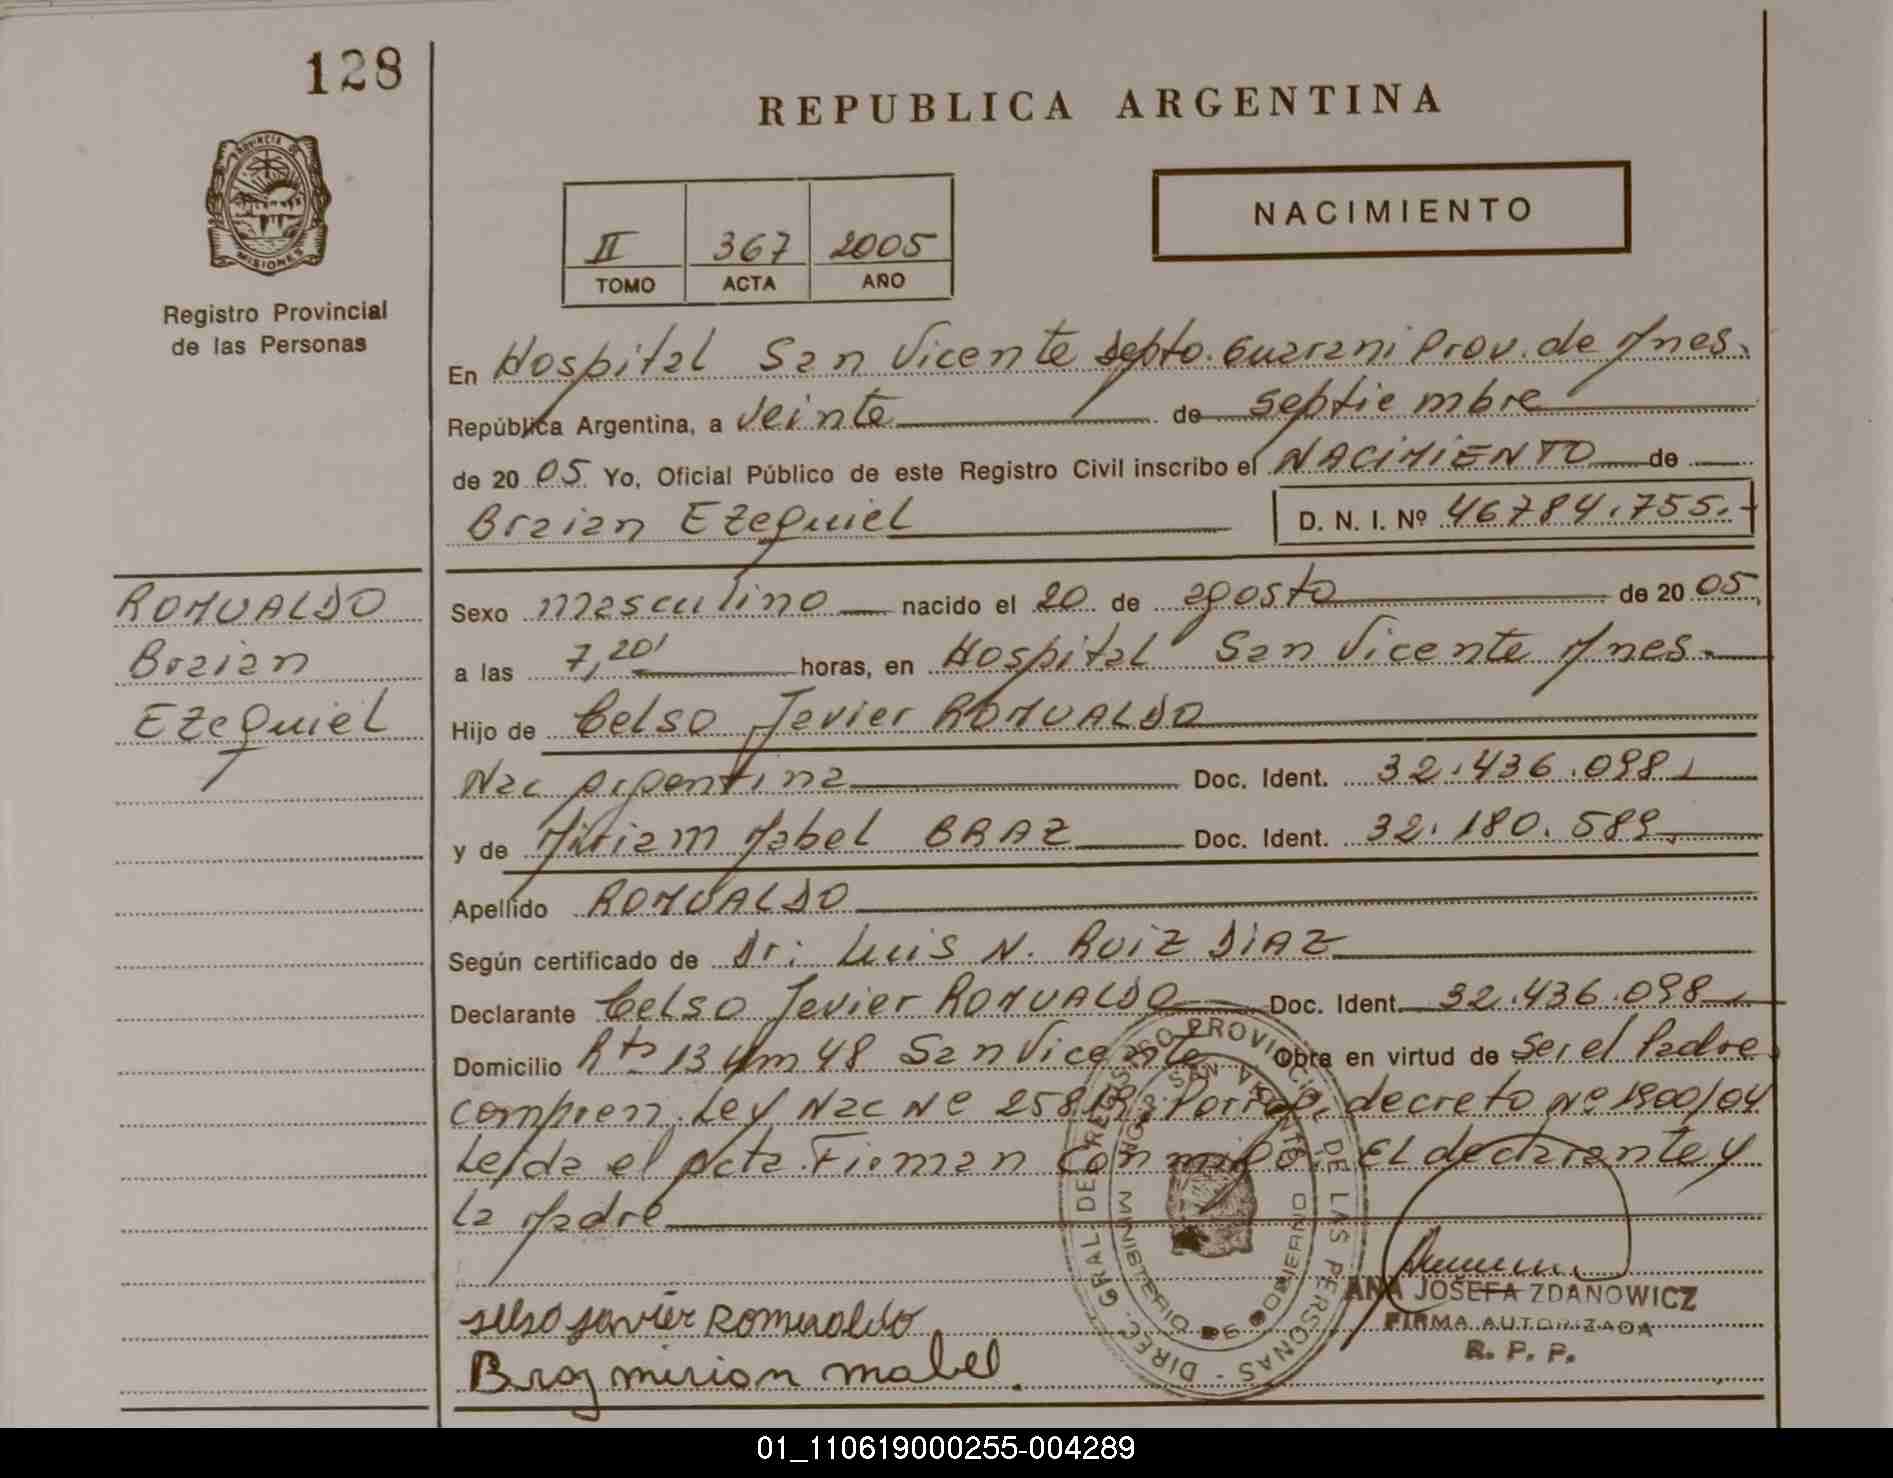 128
REPUBLICA ARGENTINA
PROVINCIA DE
MISIONES
Registro Provincial
de las Personas
NACIMIENTO
II 367 2005
TOMO ACTA AÑO
En Hospital San Vicente Depto. Guarani Prov. de Mnes.
República Argentina, a veinte de septiembre
de 2005 Yo, Oficial Público de este Registro Civil inscribo el NACIMIENTO de
Braian Ezequiel D. N. I. Nº 46784.755.-
ROMUALDO
Braian
Ezequiel
Sexo masculino nacido el 20 de agosto de 2005,
a las 7,20' horas, en Hospital San Vicente Mnes.
Hijo de Celso Javier ROMUALDO
Nac argentina Doc. Ident. 32.436.098
y de Miriam Mabel BRAZ Doc. Ident. 32.180.589
Apellido ROMUALDO
Según certificado de Dr: Luis N. RUIZ DIAZ
Declarante Celso Javier ROMUALDO Doc. Ident. 32.436.098
Domicilio Rta 13 Km 48 San Vicente Obra en virtud de ser el Padre
compren. Ley Nac Nº 25819, Porrog. decreto Nº 1900/04
Leida el acta. Firman conmigo. El declarante y
la Madre
selso javier Romualdo
Braz mirian mabel.
DIREC. GRAL. DE REGISTRO PROVINCIAL DE LAS PERSONAS
MINISTERIO DE GOBIERNO
SAN VICENTE
ANA JOSEFA ZDANOWICZ
FIRMA AUTORIZADA
R. P. P.
01_110619000255-004289